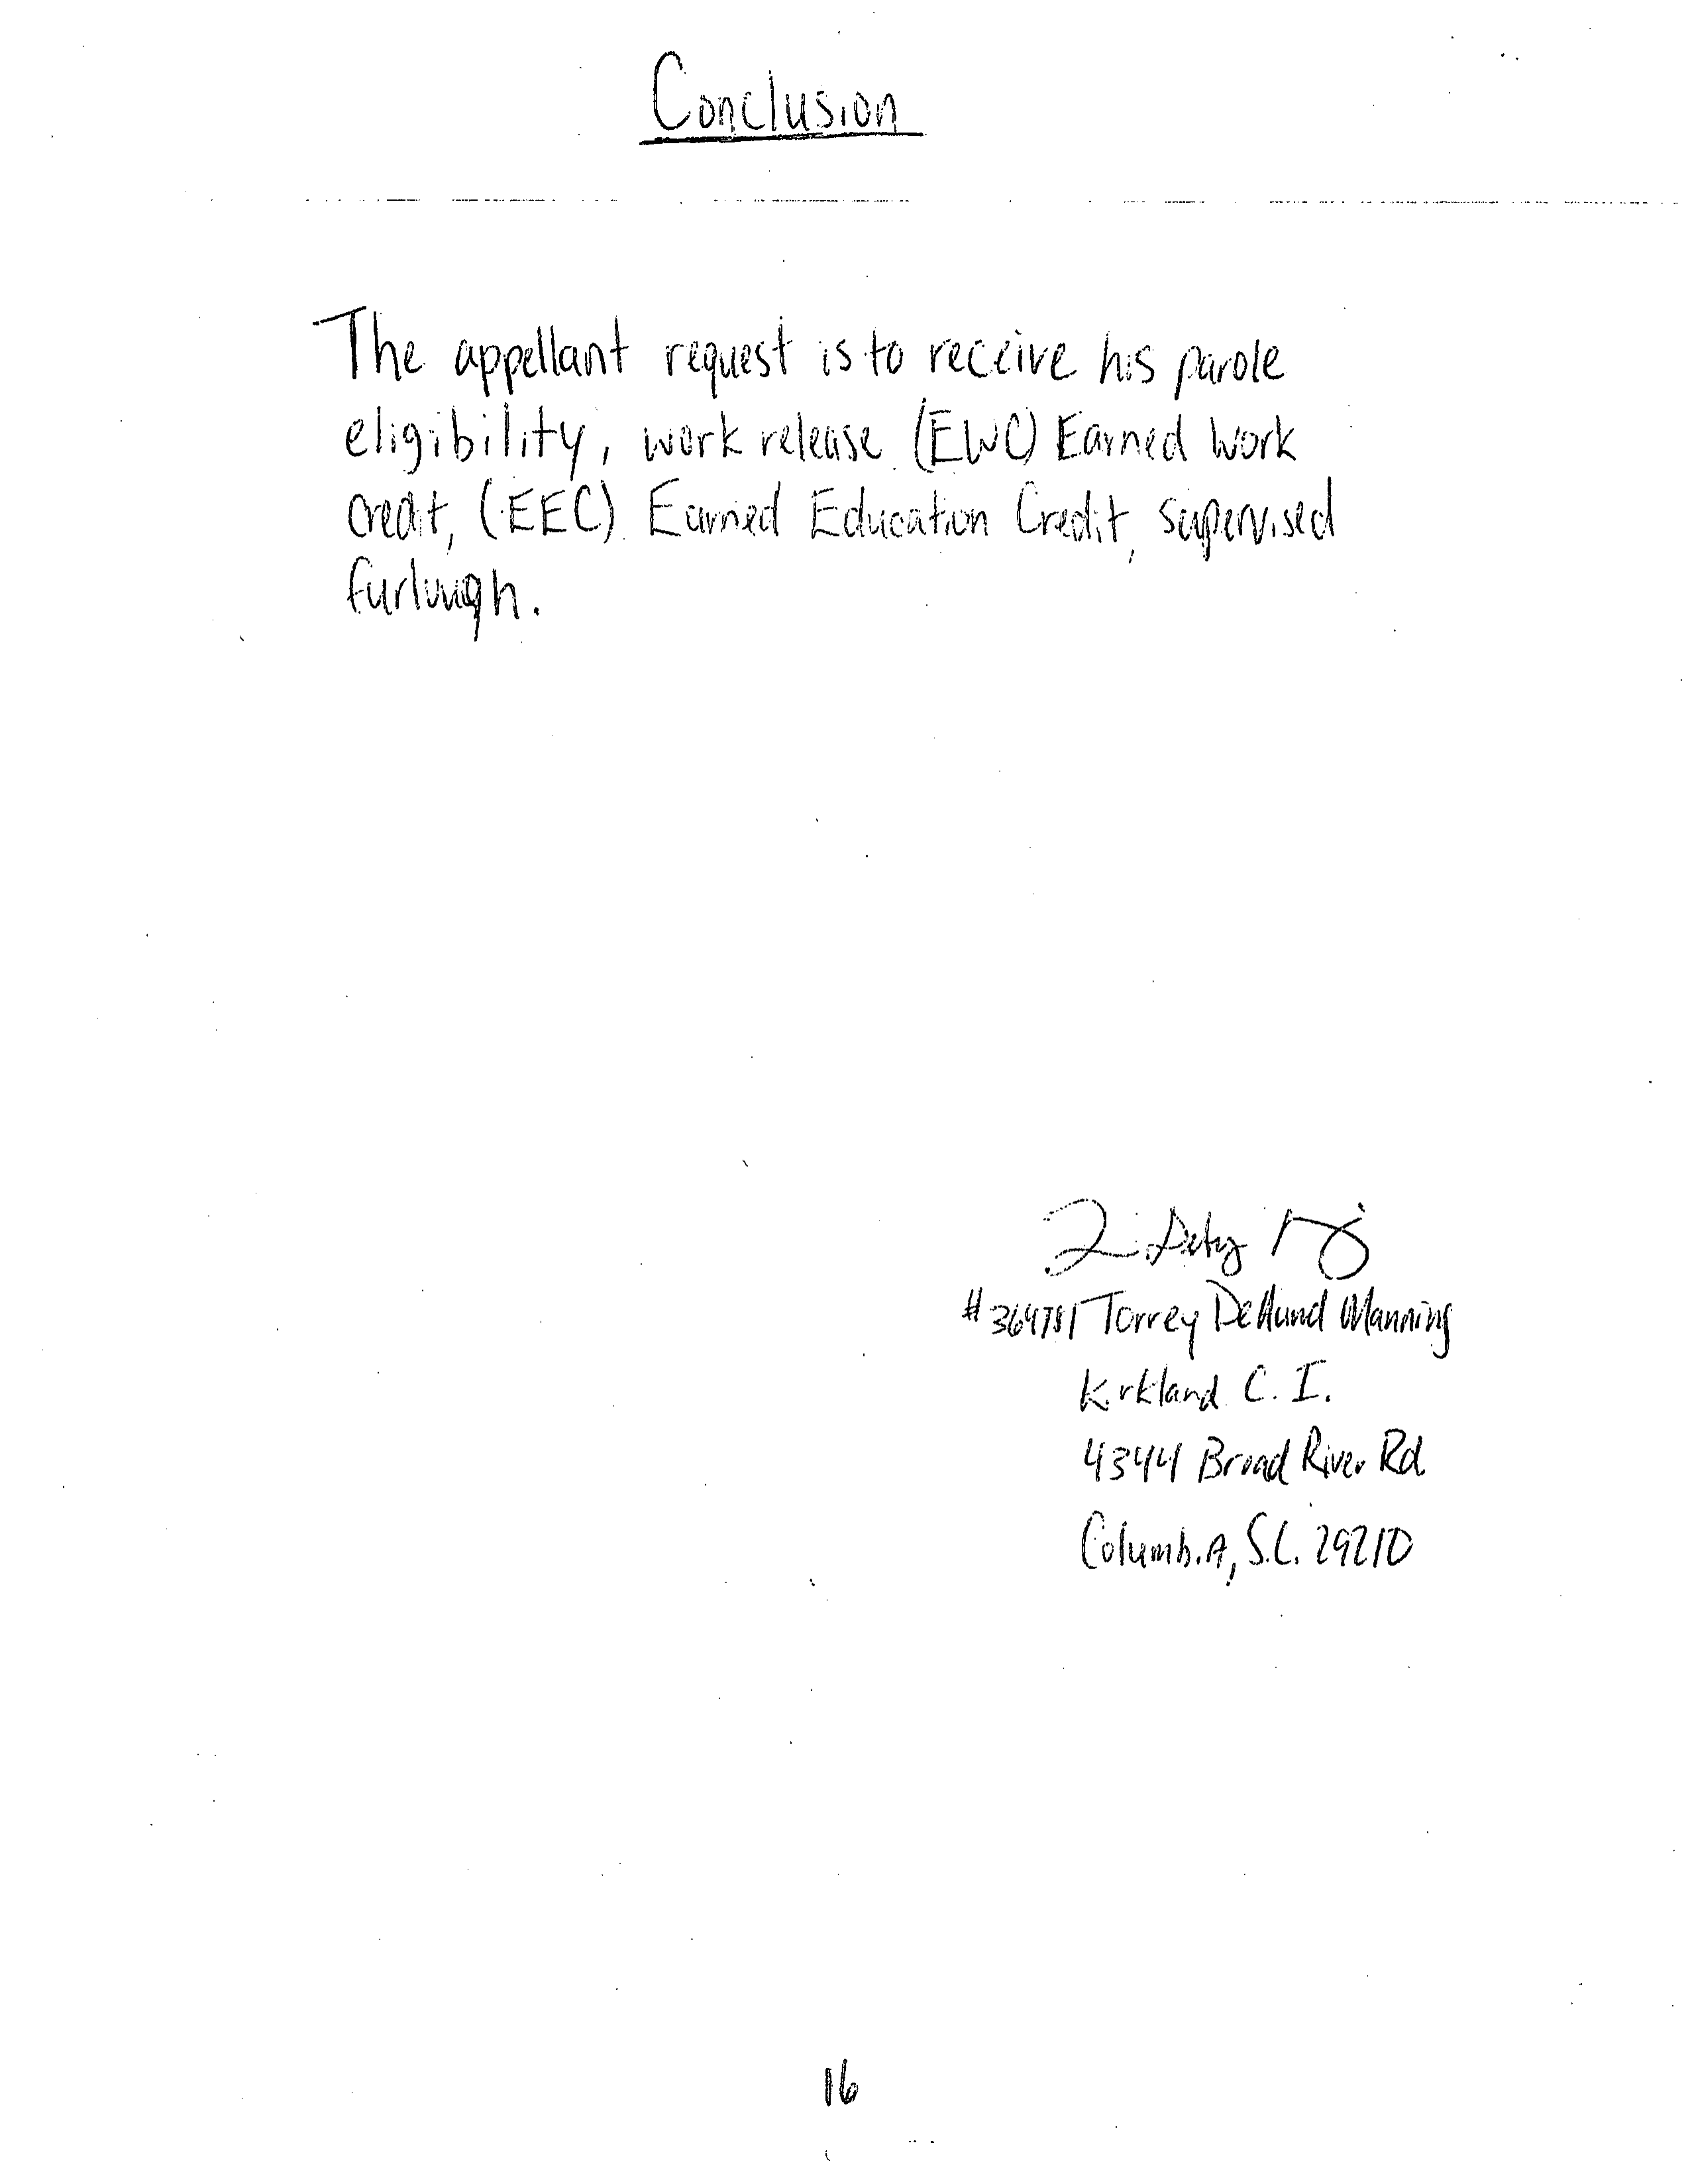 Conclusion
The appellant request is to receive his parole
eligibility, work release (EWC) Earned Work
Credit, (EEC) Earned Education Credit, supervised
furlough.
Torrey Manning
Kirkland C. I.
4344 Broad River Rd.
Columbia, S.C. 29210
16